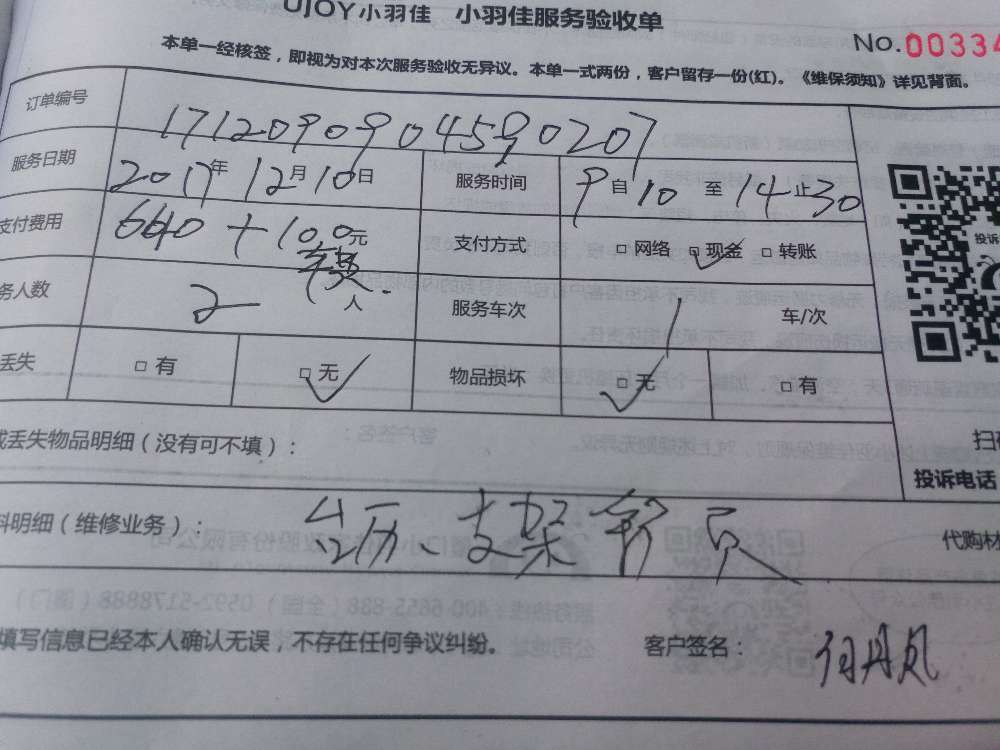 UJOY小羽佳 小羽佳服务验收单
No.00334
本单一经核签，即视为对本次服务验收无异议。本单一式两份，客户留存一份(红)。《维保须知》详见背面。
订单编号
服务日期 2017年12月10日 服务时间 9自10至14止30
支付费用 660+100元 车费 支付方式 □网络 □现金 □转账
务人数 2人 服务车次 1 车/次
丢失 □有 □无 物品损坏 □无 □有
投诉
或丢失物品明细（没有可不填）：
扫
投诉电话
料明细（维修业务）： 支架
代购材
填写信息已经本人确认无误，不存在任何争议纠纷。 客户签名： 何丹凤